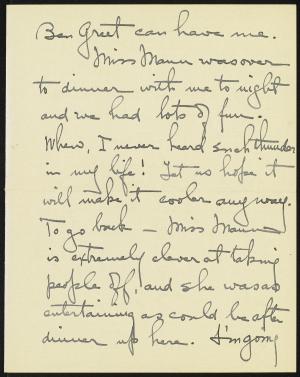 Ben Greet can have me.
Miss Mann was over
to dinner with me to night
and we had lots of fun.
Whew, I never heard such thunder
in my life! Let us hope it
will make it cooler any way.
To go back – Miss Mann
is extremely clever at taking
people off, and she was as
entertaining as could be after
dinner up here. I'm going